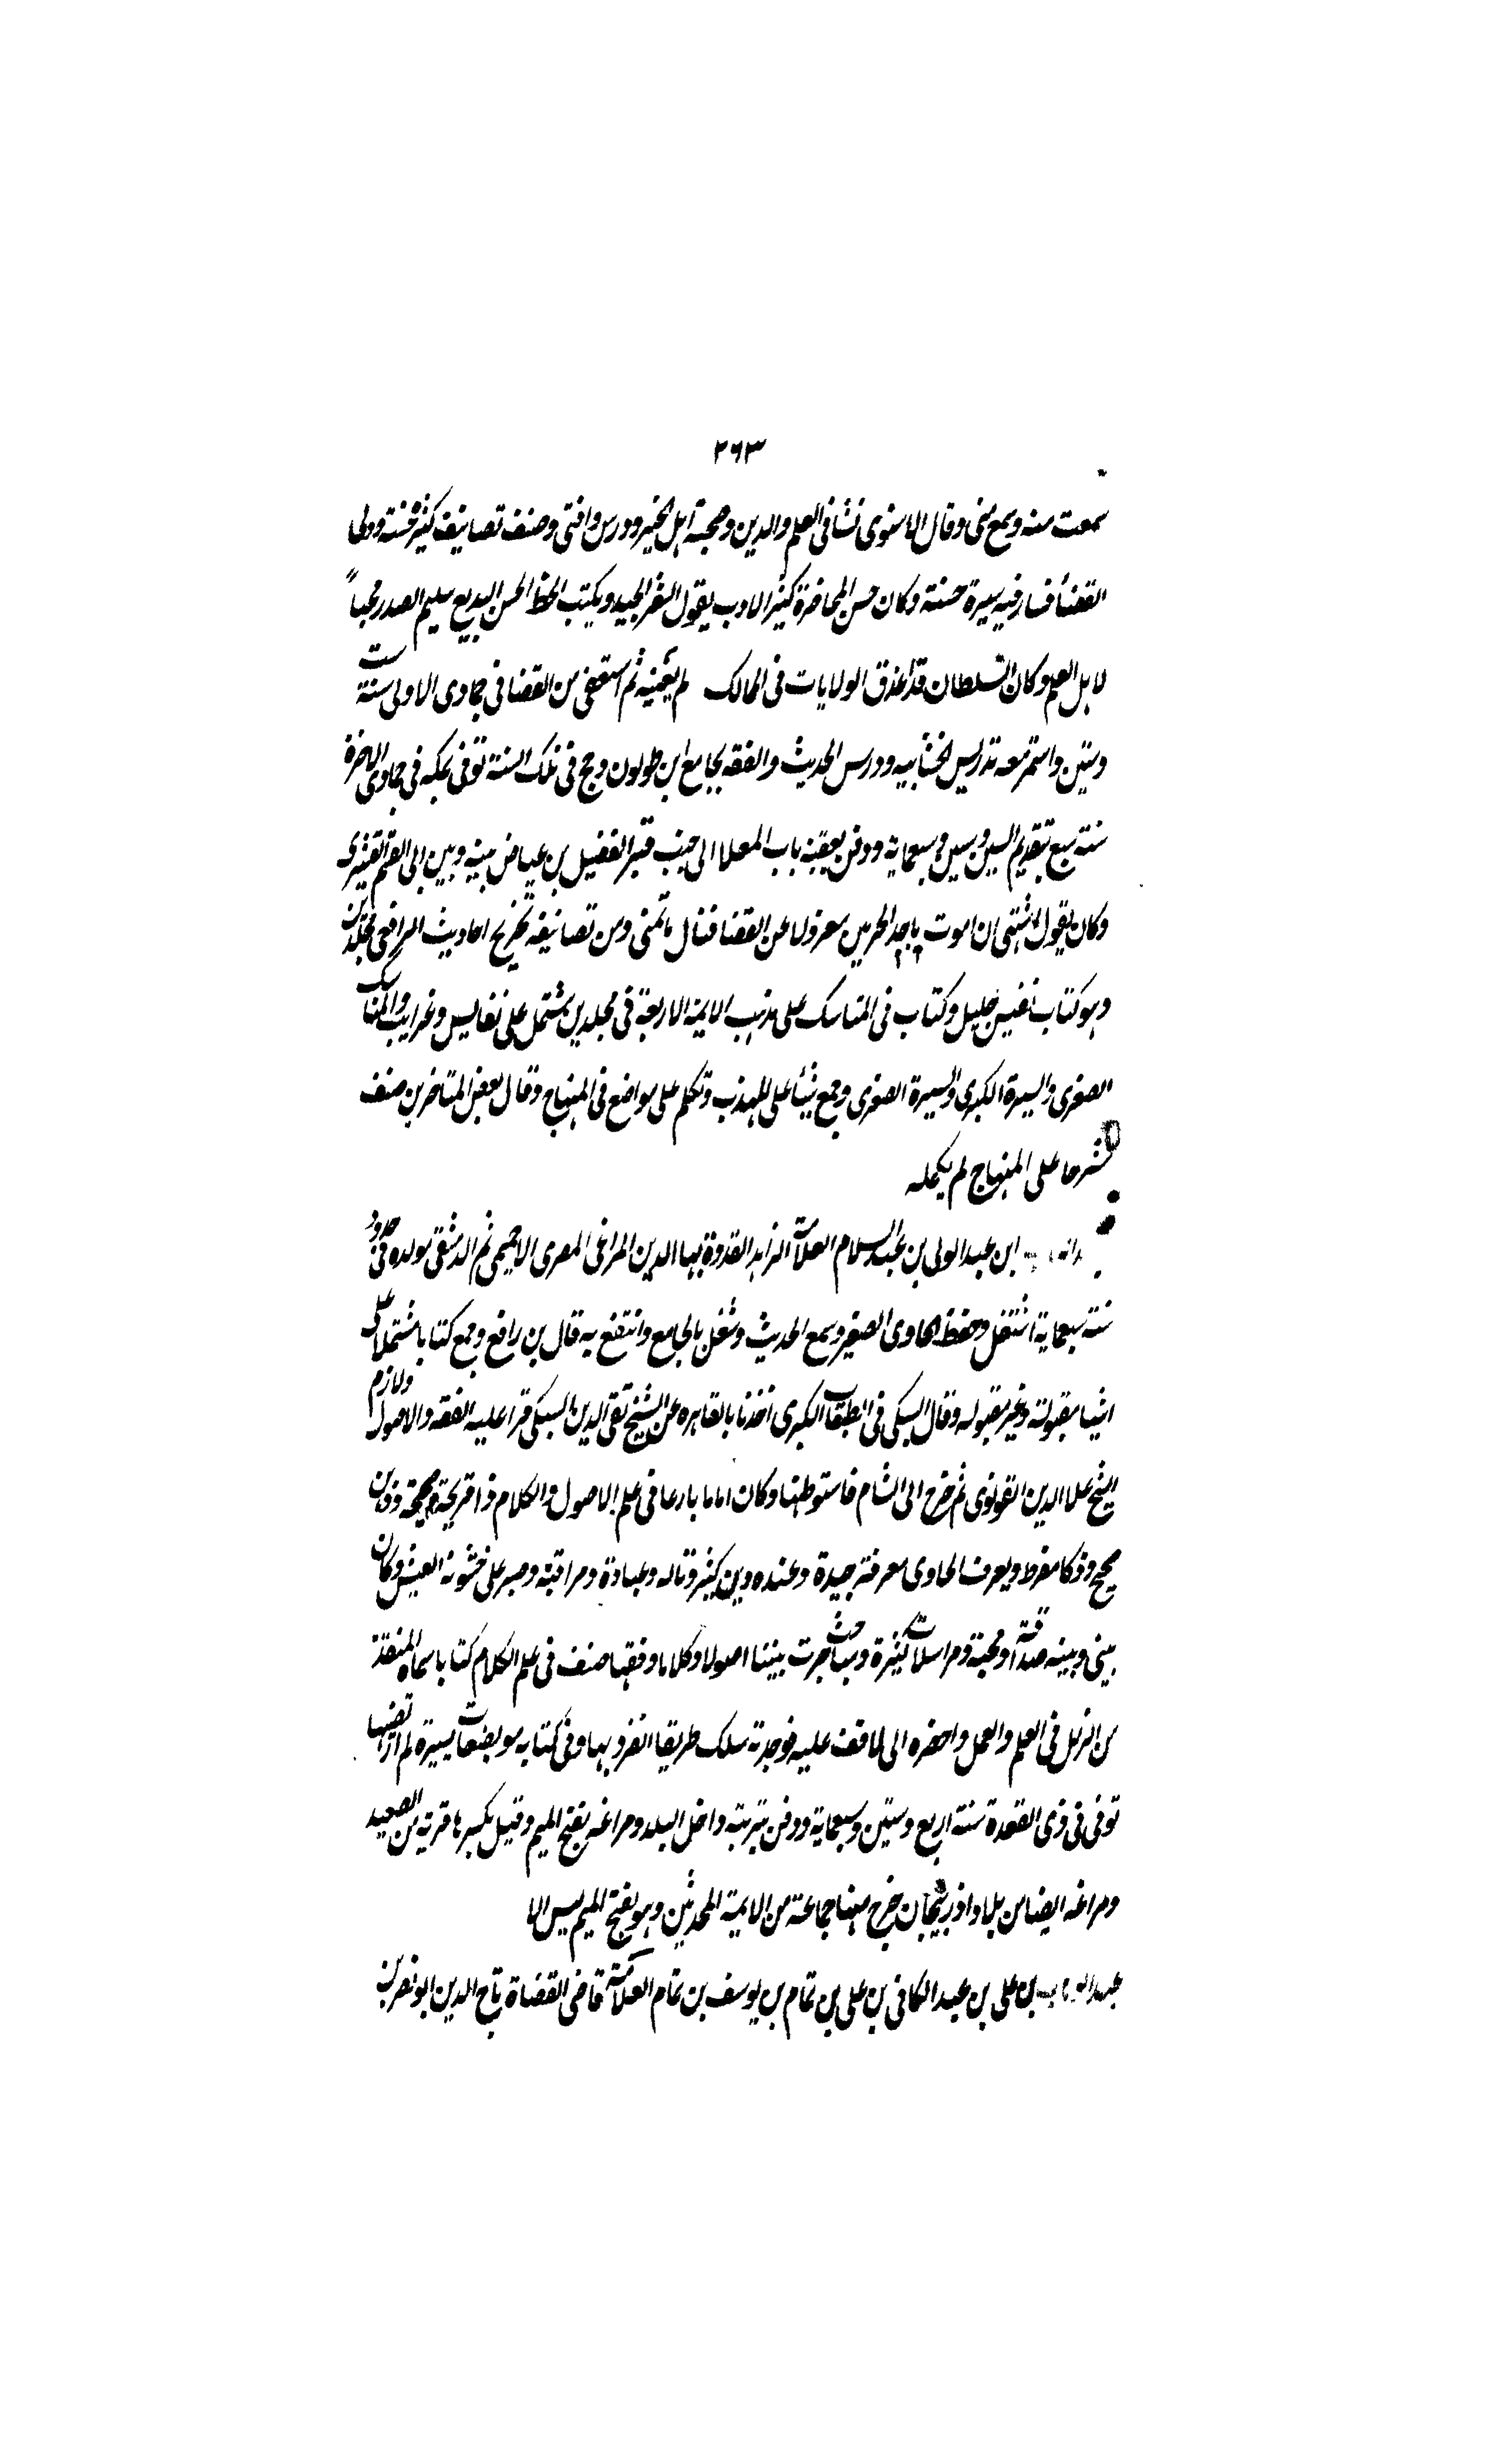 ٢٦٣
سمعت منه وسمع منى وقال الاسنوى نشا فى العلم والدين وصحبة اهل الخير ودرس وافتى وصنف تصانيف كثيرة حسنة وولى
القضأ فسار فيه سيرة حسنة وكان حسن المحاضرة كثير الادب يقول الشعر الجيد ويكتب الخط الحسن البديع سليم الصدر محباً
لاهل العلم وكان السلطان قد اغدق الولايات فى الممالك لم يعينه ثم استعفى من القضا فى جمادى الاولى سنة ست
وستين واستمر معه تدريس الخشابيه ودرس الحديث والفقه بجامع ابن طولون وحج فى تلك السنة توفى بمكه فى جمادى الاخرة
سنة سبع بتقديم السين وستين وسبعماية ودفن بعقبة باب المعلا الى جنب قبر الفضيل بن عياض بينه وبين ابى القسم القشيرى
وكان يقول اشتهى ان اموت باحد الحرمين معزولا عن القضا فنال ما تمنى ومن تصانيفه تخريج احاديث الرافعى مجلدين
وهو كتاب نفيس جليل وكتاب فى المناسك على مذهب الايمة الاربعة فى مجلدين يشتمل على نفايس وغرايب والمناسك
الصغرى والسيرة الكبرى والسيرة الصغرى وجمع شيأ على المهذب وتكلم على مواضع فى المنهاج وقال بعض المتاخرين صنف
شرحا على المنهاج لم يكمله
ابن عبد الولى بن عبد السلام العلامة الزاهد القدوة بها الدين المراغى المصرى الاخميمى ثم الدمشقى مولده فى حدود
سنة سبعماية اشتغل وحفظ الحاوى الصغير وسمع الحديث وشغل بالجامع وانتفع به قال بن رافع وجمع كتابا مشتملا على
اشيا مقبولة وغير مقبوله وقال السبكى فى الطبقات الكبرى اخذنا بالقاهره عن الشيخ تقى الدين السبكى قرا عليه الفقه والاصول ولازم
الشيخ علا الدين القونوى ثم خرج الى الشام فاستوطنها وكان اماما بارعا فى علم الاصول والكلام ذا قريحة صحيحة وذهن
صحيح وذكا مفرط ويعرف الحاوى معرفة جيدة وعنده دين كثير وتاله وعبادة ومراقبة وصبر على خشونة العيش وكان
بينى وبينه صداقة ومحبة ومراسلات كثيرة ومباحث جرت بيننا اصولا وكلاما وفقها صنف فى علم الكلام كتابا سماه المنقذ
من الزلل فى العلم والعمل واحضره الى لاقف عليه فوجدته سلك طريقا انفرد بها وفى كتابه مويضعات يسيرة لم ارتضها
توفى فى ذى القعدة سنة اربع وستين وسبعماية ودفن بتربته داخل البلد ومراغه بفتح الميم وقيل بكسرها قرية من الصعيد
ومراغه ايضا من بلاد اذربيجان خرج منها جماعة من الايمة المحدثين وهو بفتح الميم ليس الا
عبد الوهاب بن على بن عبد الكافى بن على بن تمام بن يوسف بن تمام العلامة قاضى القضاة تاج الدين ابو نصر بن